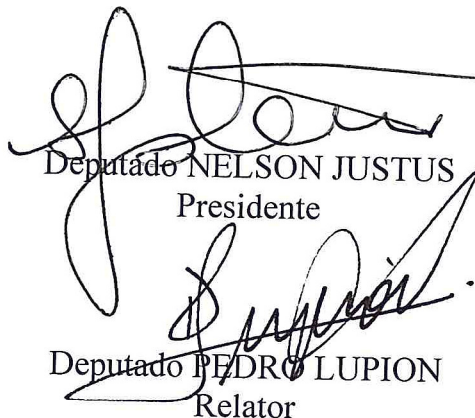 Deputado NELSON JUSTUS
Presidente
Deputado PEDRO LUPION
Relator